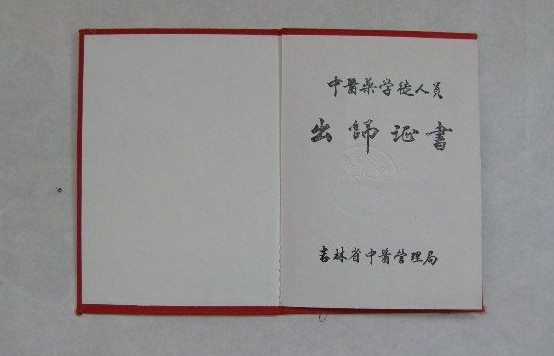 中醫藥学徒人員
出師证書
吉林省中醫管理局